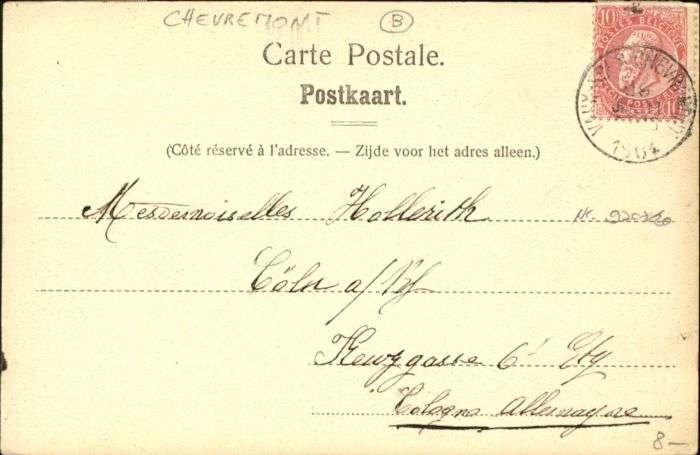 CHEVREMONT
B
10 POSTES BELGIQUE 10
Carte Postale.
Postkaart.
(Côté réservé à l'adresse. — Zijde voor het adres alleen.)
1904
Mesdemoiselles Hollerith
Cöln a/Rh
6
Cologne Allemagne
8-